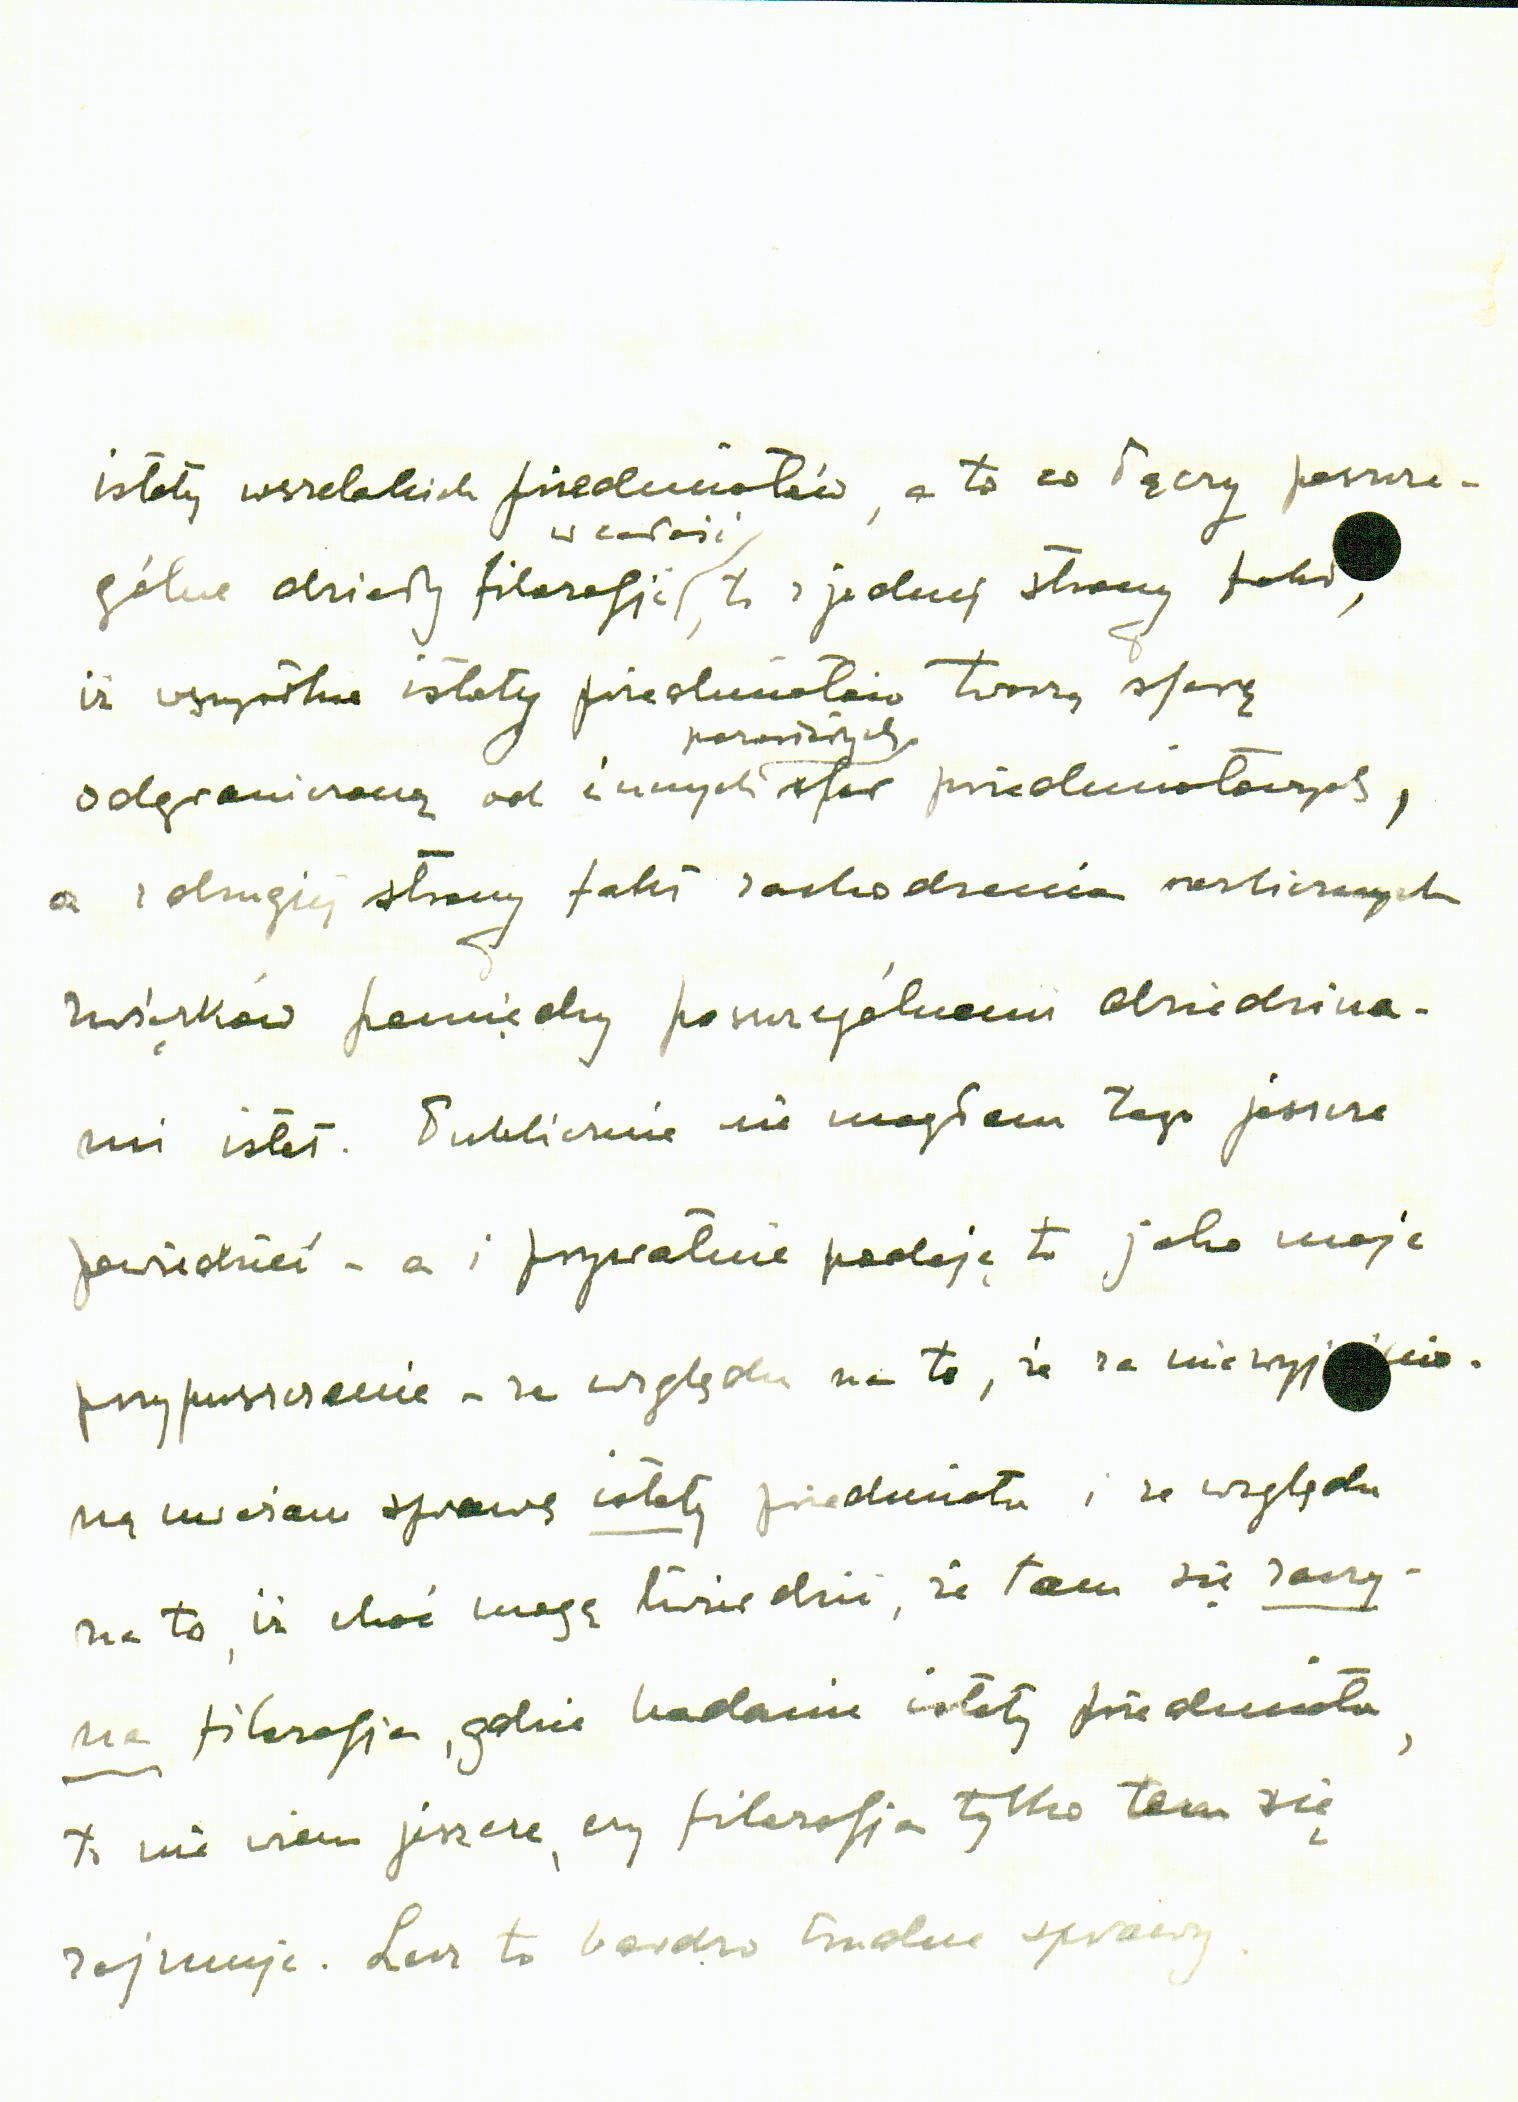 istoty wszelakich przedmiotów, a to co łączy poszcze-
gólne działy filozofji w całość, to z jednej strony fakt,
iż wszystkie istoty przedmiotów tworzą sferę
odgraniczoną od innych sfer przedmiotowych,
a z drugiej strony fakt zachodzenia rozlicznych
związków pomiędzy poszczególnemi dziedzina-
mi istot. Publicznie nie mogłem tego jeszcze
powiedzieć - a i prywatnie podaję to jako moje
przypuszczenie - ze względu na to, że za niewyjaśnio-
ną uważam sprawę istoty przedmiotu i ze względu
na to, iż choć mogę twierdzić, że tam się zaczy-
na filozofja, gdzie badanie istoty przedmiotu,
to nie wiem jeszcze, czy filozofja tylko tem się
zajmuje. Lecz to bardzo trudne sprawy.